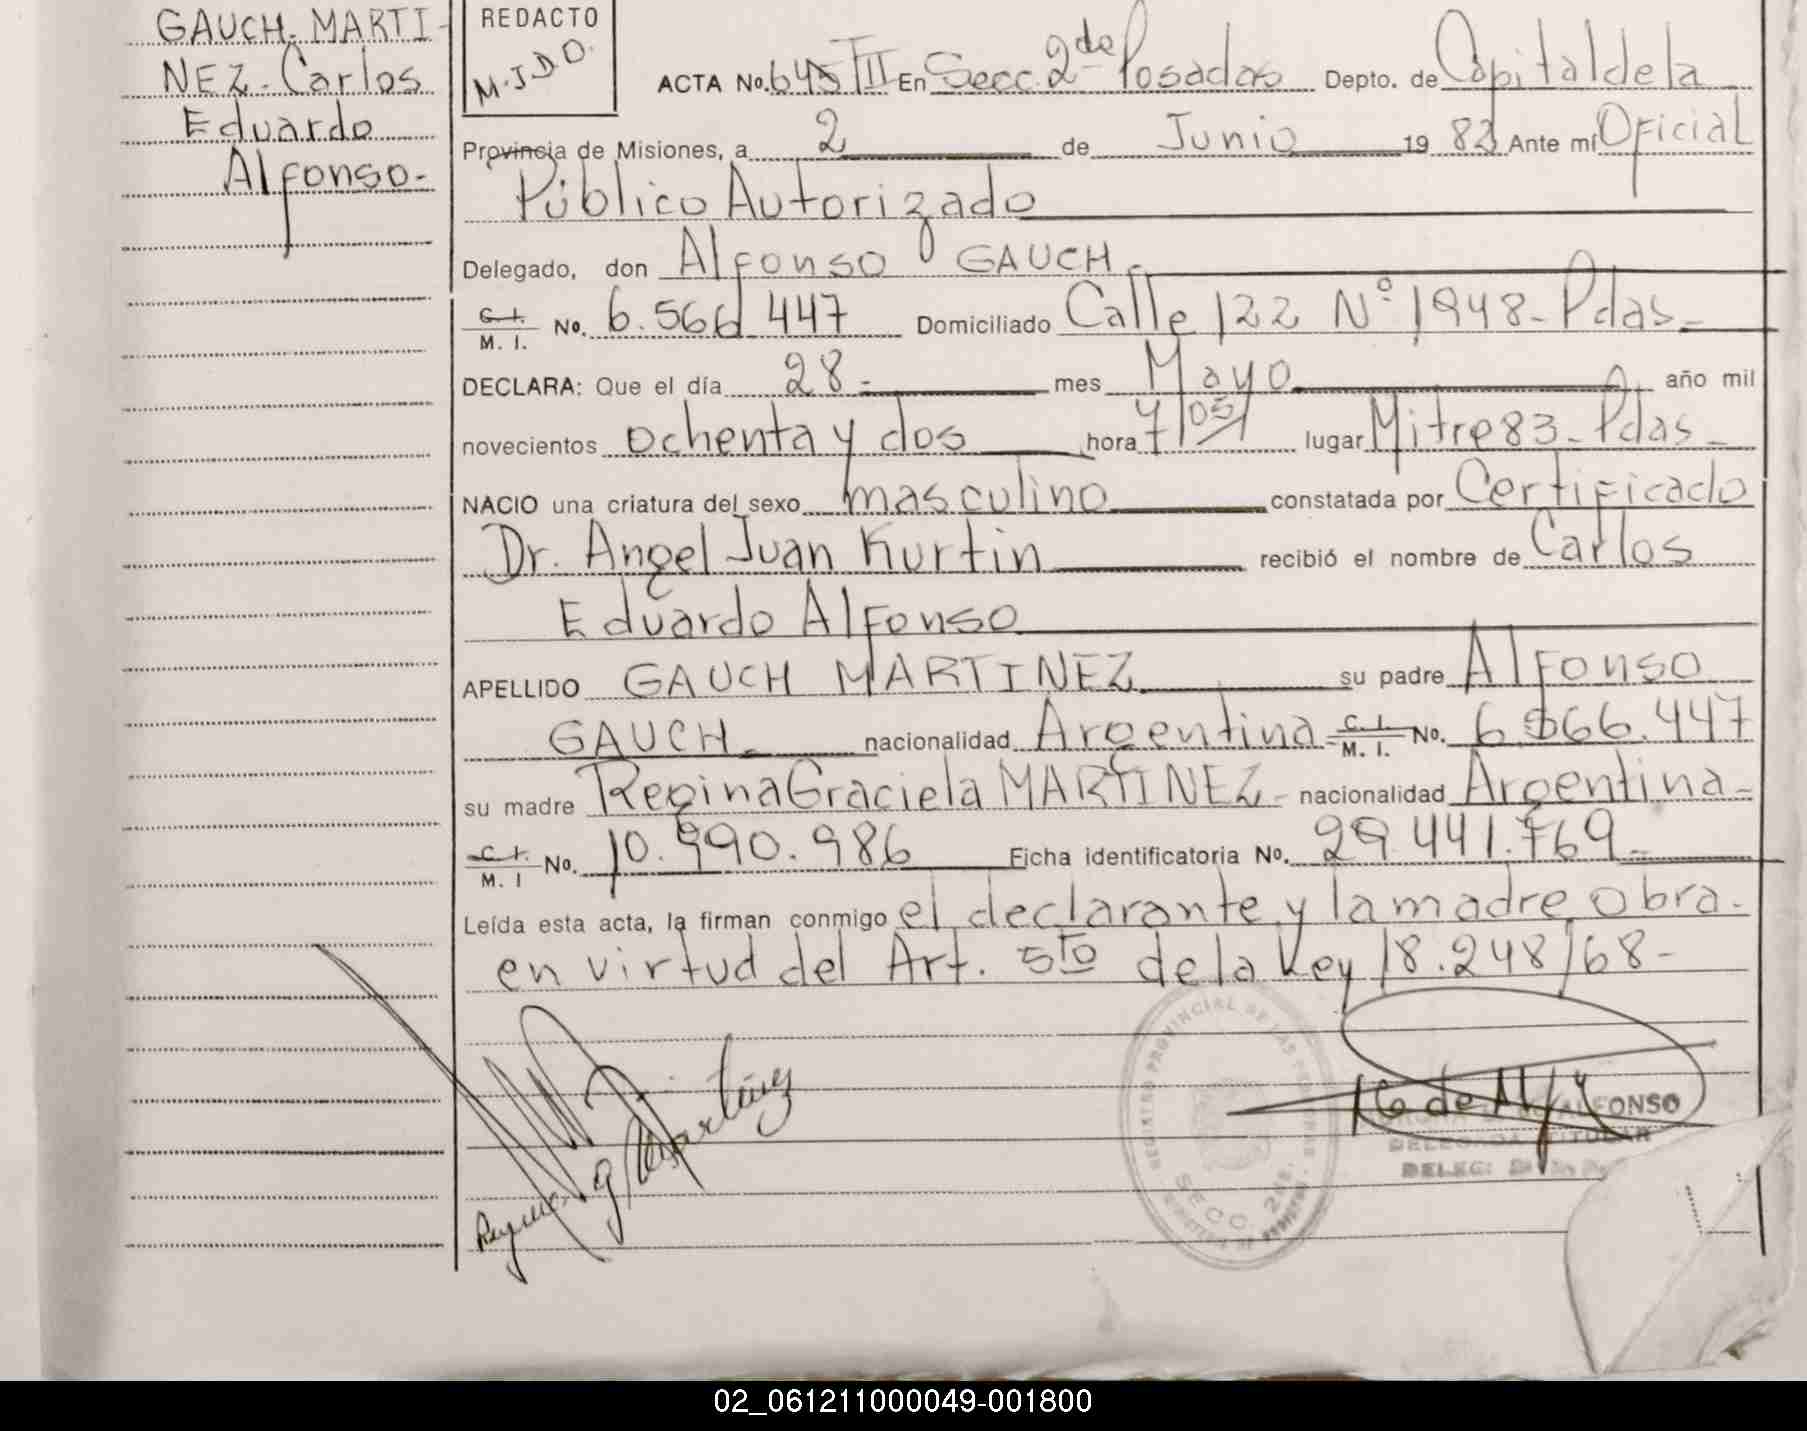 GAUCH-MARTI-
NEZ-Carlos
Eduardo
Alfonso-
REDACTO
M.J.D.O.
ACTA No. 645 TII En Secc. 2da Posadas Depto. de Capital de la
Provincia de Misiones, a 2 de Junio 1982 Ante mí Oficial
Público Autorizado
Delegado, don Alfonso GAUCH
C.I. / M. I. No. 6.566.447 Domiciliado Calle 122 Nº 1948-Pdas-
DECLARA: Que el día 28- mes Mayo año mil
novecientos ochenta y dos hora 7/05/ lugar Mitre 83-Pdas-
NACIO una criatura del sexo masculino constatada por Certificado
Dr. Angel Juan Kurtin recibió el nombre de Carlos
Eduardo Alfonso
APELLIDO GAUCH MARTINEZ su padre Alfonso
GAUCH- nacionalidad Argentina C.I. / M. I. No. 6.566.447
su madre Regina Graciela MARTINEZ- nacionalidad Argentina-
C.I. / M. I No. 10.990.986 Ficha identificatoria No. 29.441.769-
Leída esta acta, la firman conmigo el declarante y la madre obra-
en virtud del Art. 5to de la Ley 18.248/68-
Martinez
REGISTRO PROVINCIAL DE LAS PERSONAS
SECC. 2da.
ALFONSO
DELEGADA TITULAR
DELEG:
02_061211000049-001800